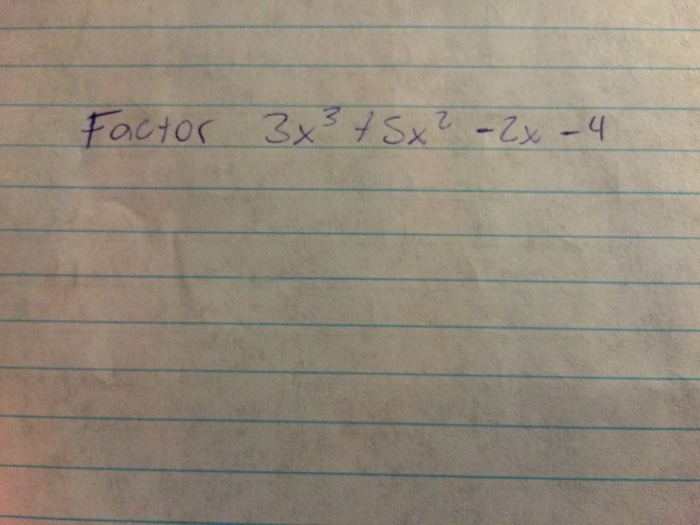 Factor 3x³ + 5x² - 2x - 4